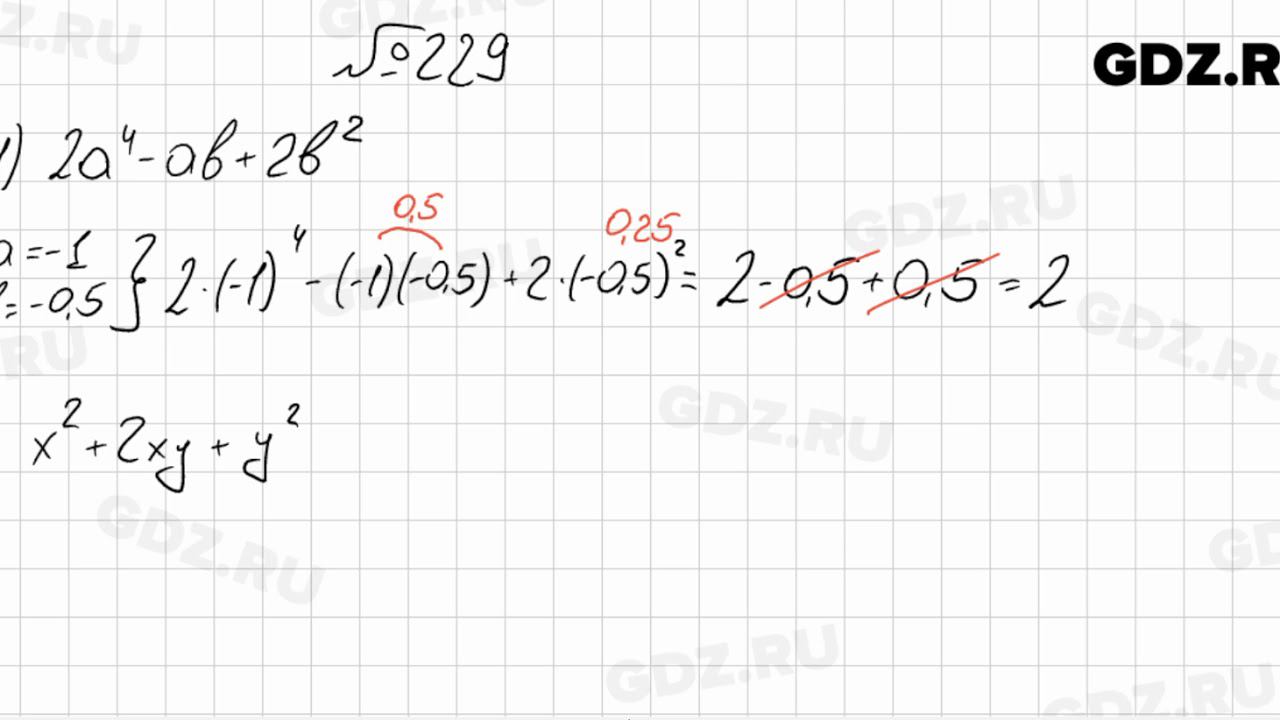 №229
GDZ.R
1) 2a⁴-ab+2b²
0,5
0,25
a=-1
b=-0,5 } 2·(-1)⁴-(-1)(-0,5)+2·(-0,5)²=2-0,5+0,5=2
x²+2xy+y²
GDZ.RU
GDZ.RU
GDZ.RU
GDZ.RU
GDZ.RU
GDZ.RU
GDZ.RU